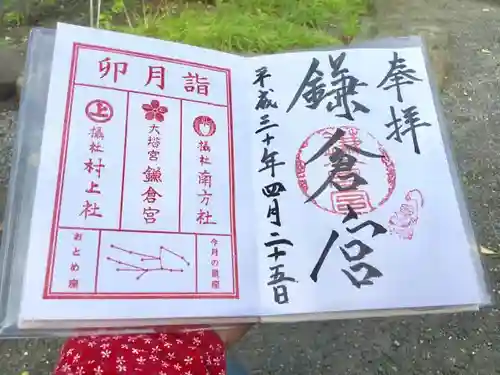 奉拝
鎌倉宮
平成三十年四月二十五日
卯月詣
摂社 南方社
大塔宮 鎌倉宮
上
摂社 村上社
今月の星座
おとめ座